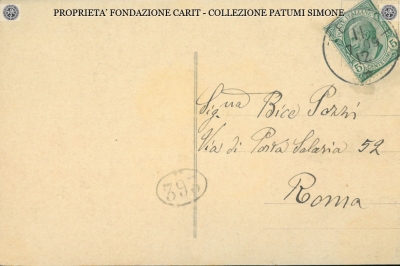 PROPRIETA' FONDAZIONE CARIT - COLLEZIONE PATUMI SIMONE
Sig.na Bice Pozzi
Via di Porta Salaria 52
Roma
393